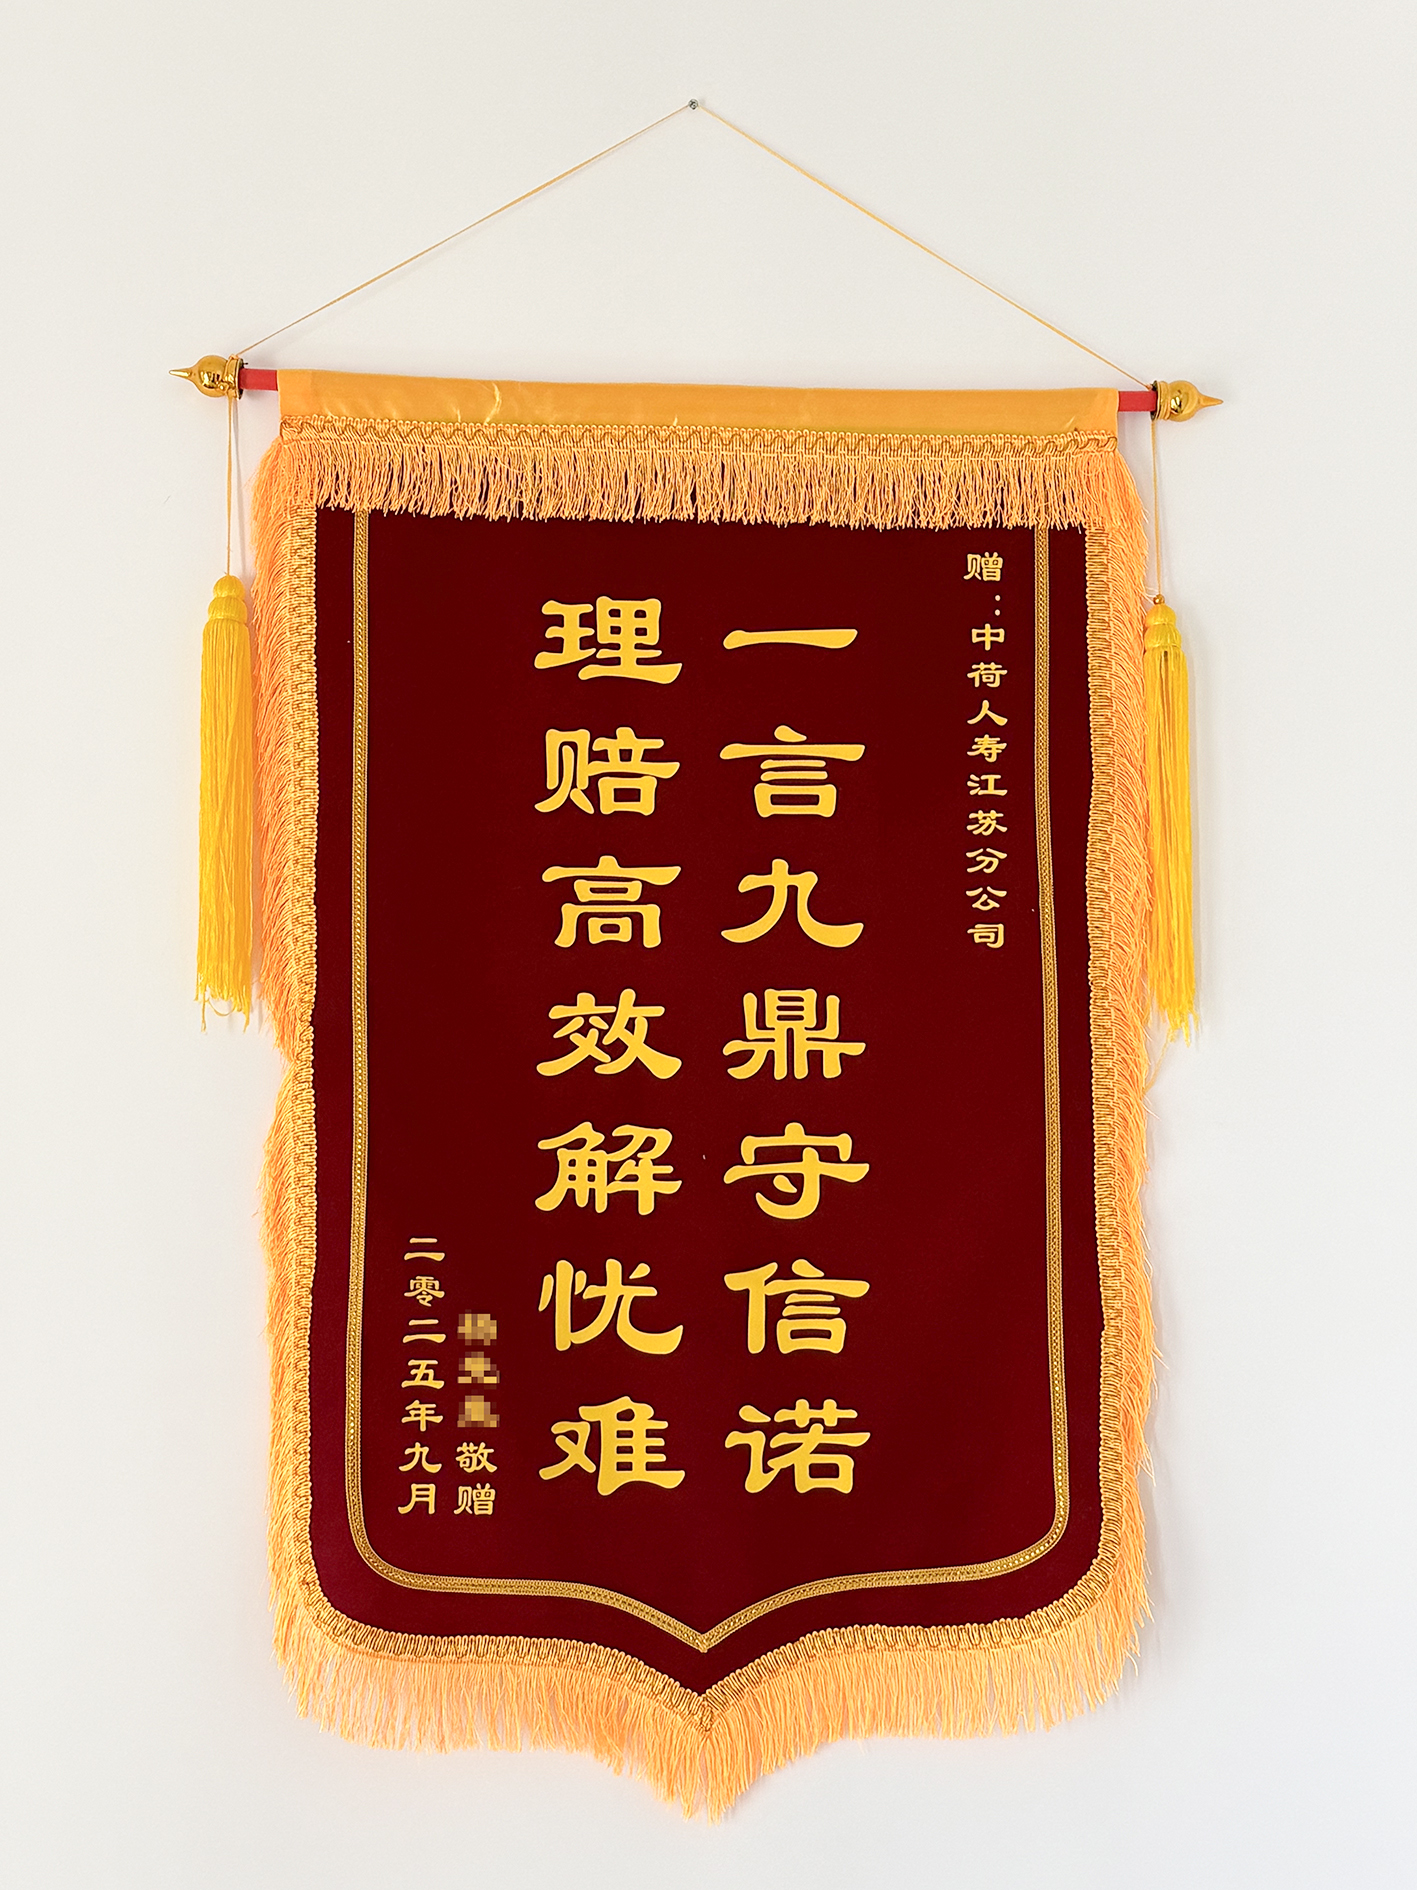 赠：中荷人寿江苏分公司
一言九鼎守信诺
理赔高效解忧难
敬赠
二零二五年九月